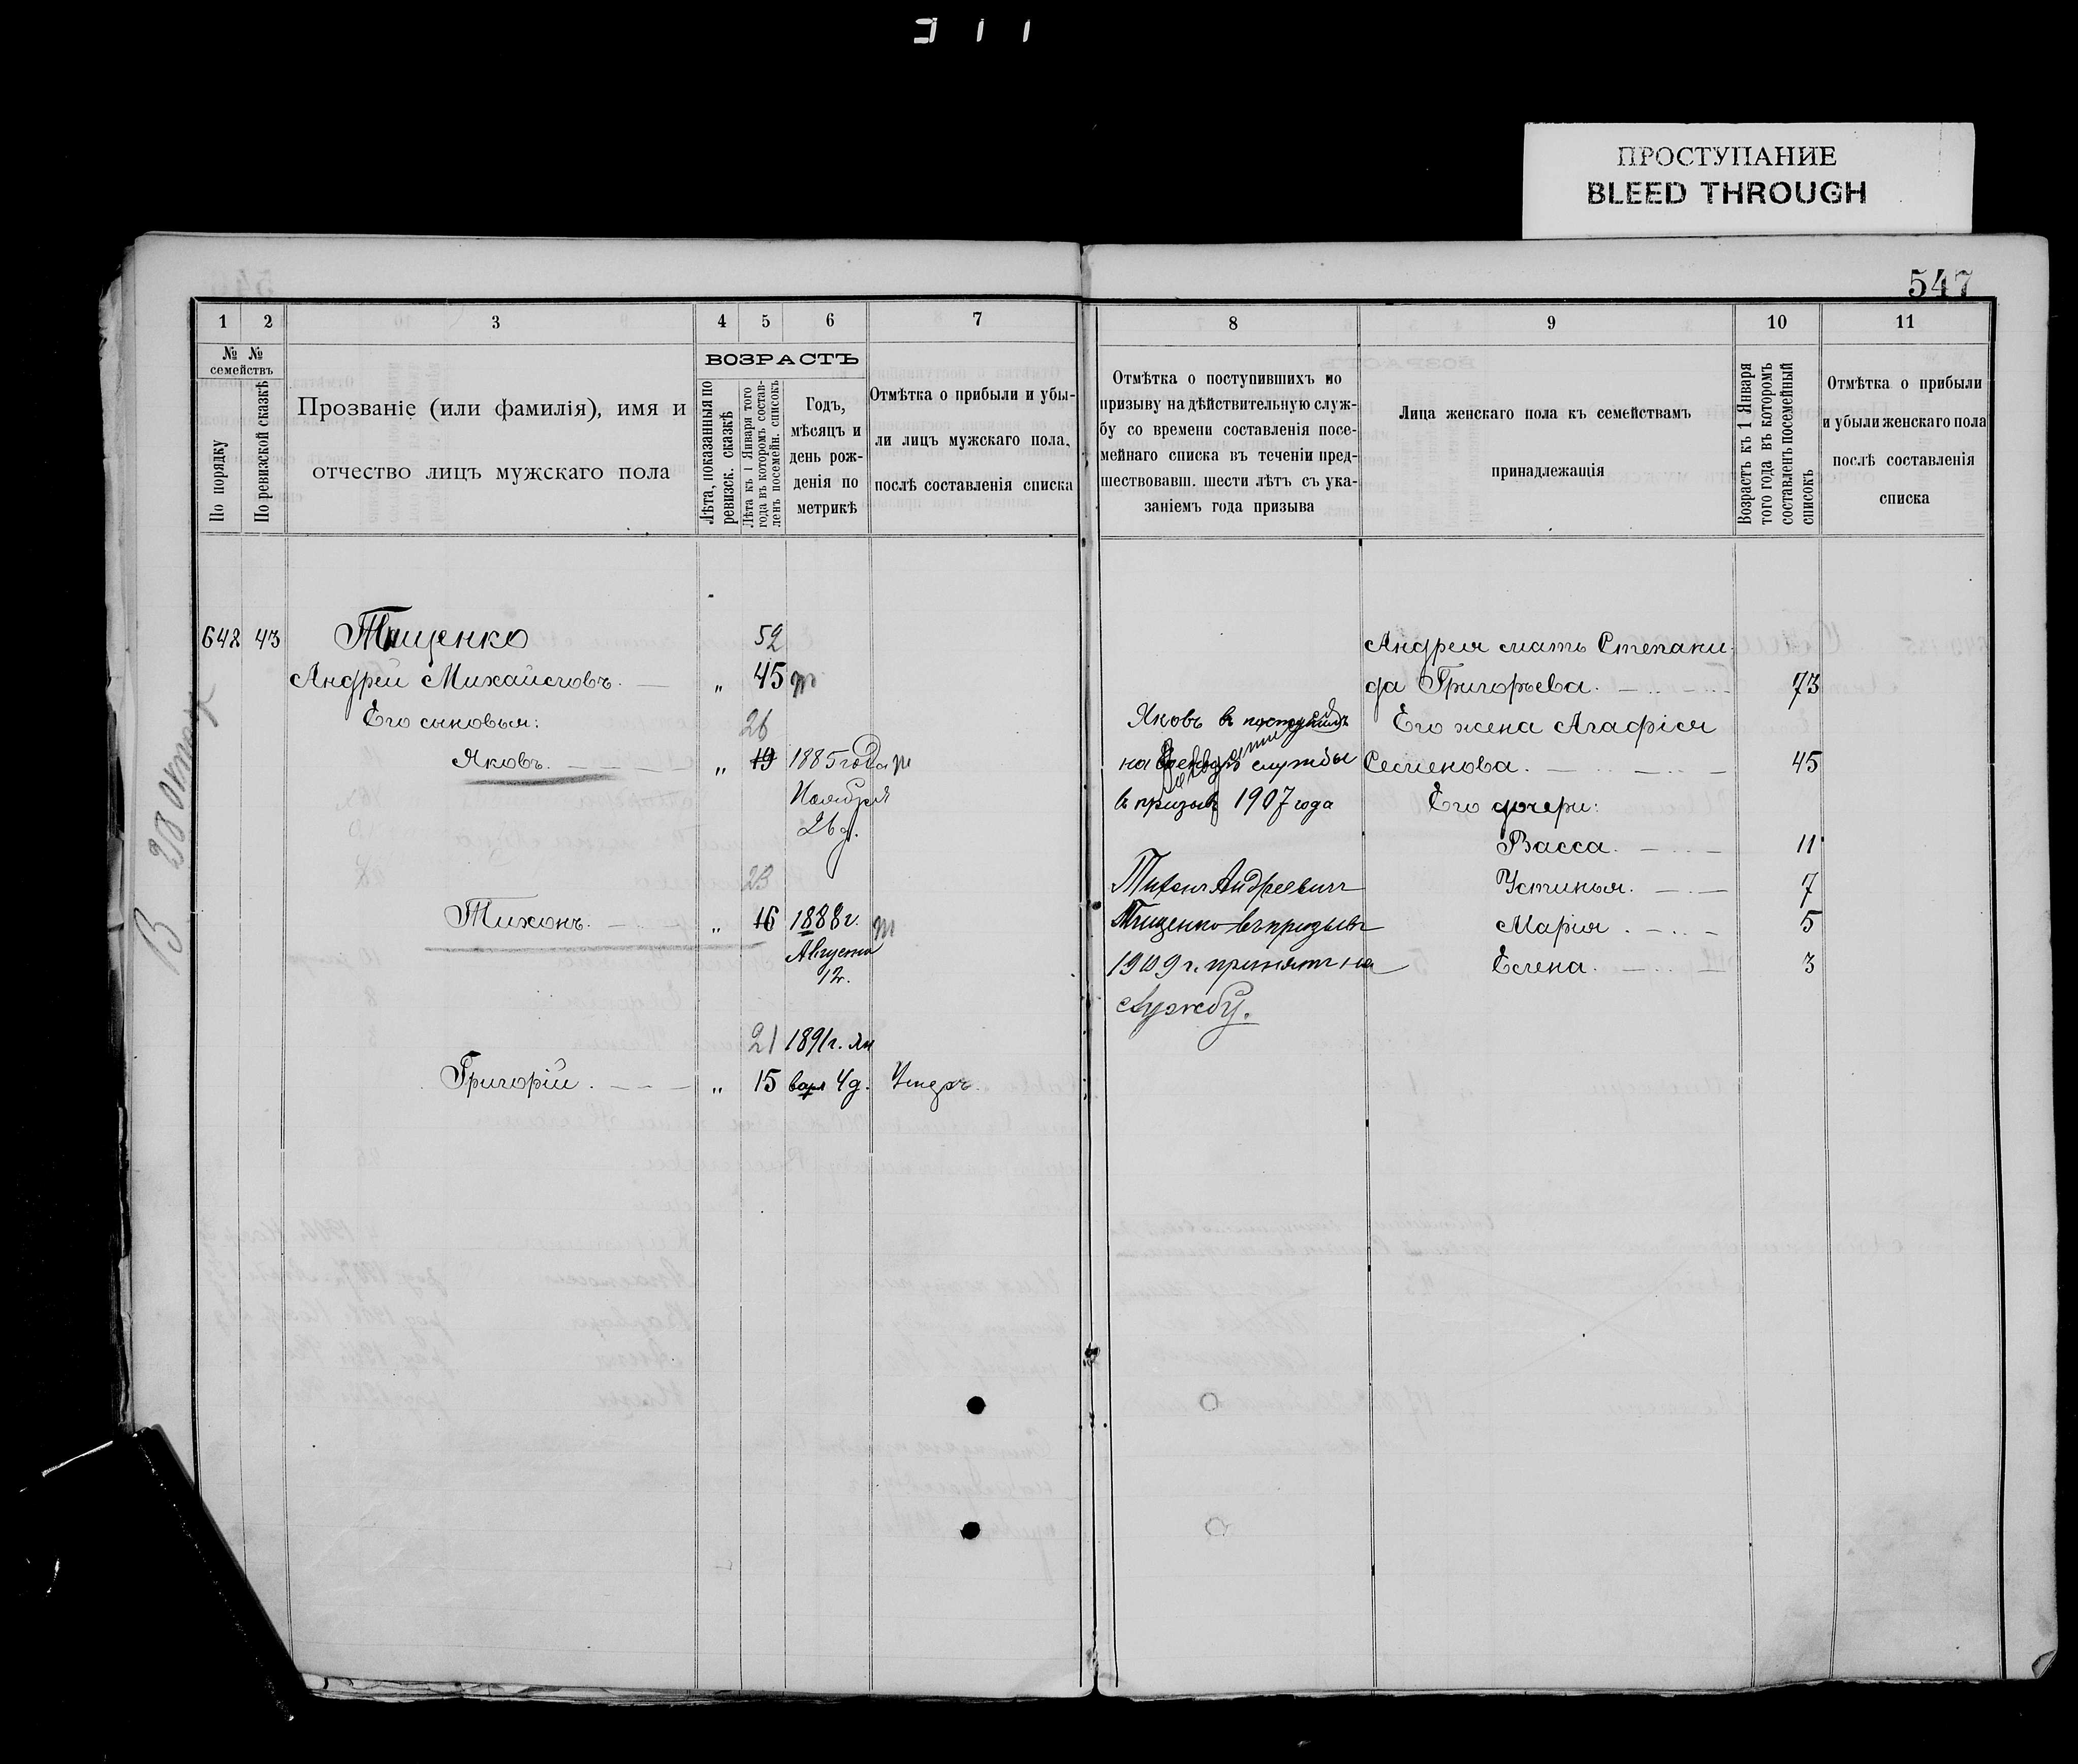 ПРОСТУПАНИЕ
BLEED THROUGH
547
1 2 3 4 5 6 7
№ № семействъ
По порядку
По ревизской сказкѣ
Прозваніе (или фамилія), имя и
отчество лицъ мужскаго пола
ВОЗРАСТЪ
Лѣта, показанныя по
ревизск. сказкѣ
Лѣта къ 1 Января того
года въ которомъ состав-
ленъ посемейн. списокъ
Годъ,
мѣсяцъ и
день рож-
денія по
метрикѣ
Отмѣтка о прибыли и убы-
ли лицъ мужскаго пола,
послѣ составленія списка
8 9 10 11
Отмѣтка о поступившихъ по
призыву на дѣйствительную служ-
бу со времени составленія посе-
мейнаго списка въ теченіи пред-
шествовавш. шести лѣтъ съ ука-
заніемъ года призыва
Лица женскаго пола къ семействамъ
принадлежащія
Возрастъ къ 1 Января
того года въ которомъ
составленъ посемейный
списокъ
Отмѣтка о прибыли
и убыли женскаго пола
послѣ составленія
списка
642 43 Тищенко 52
Андрей Михайловъ. „ 45
Его сыновья: 26
Яковъ. „ 19 1885 года
Ноября
26 д.
23
Тихонъ. „ 16 1888 г.
Августа
12.
21 1891 г. Ян
Григорій. „ 15 варя 4 д. Умеръ.
Яковъ
на службы
в призывъ 1907 года
Тихон Андреевич
Тищенко въ призывъ
1909 г. принят на
службу.
Андрея мать Степани-
да Григорьева. 73
Его жена Агафія
Семенова. 45
Его дочери:
Васса. 11
Устинья. 7
Марія. 5
Елена. 3
В 20